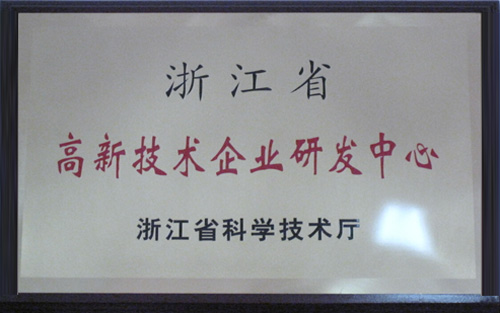 浙江省
高新技术企业研发中心
浙江省科学技术厅